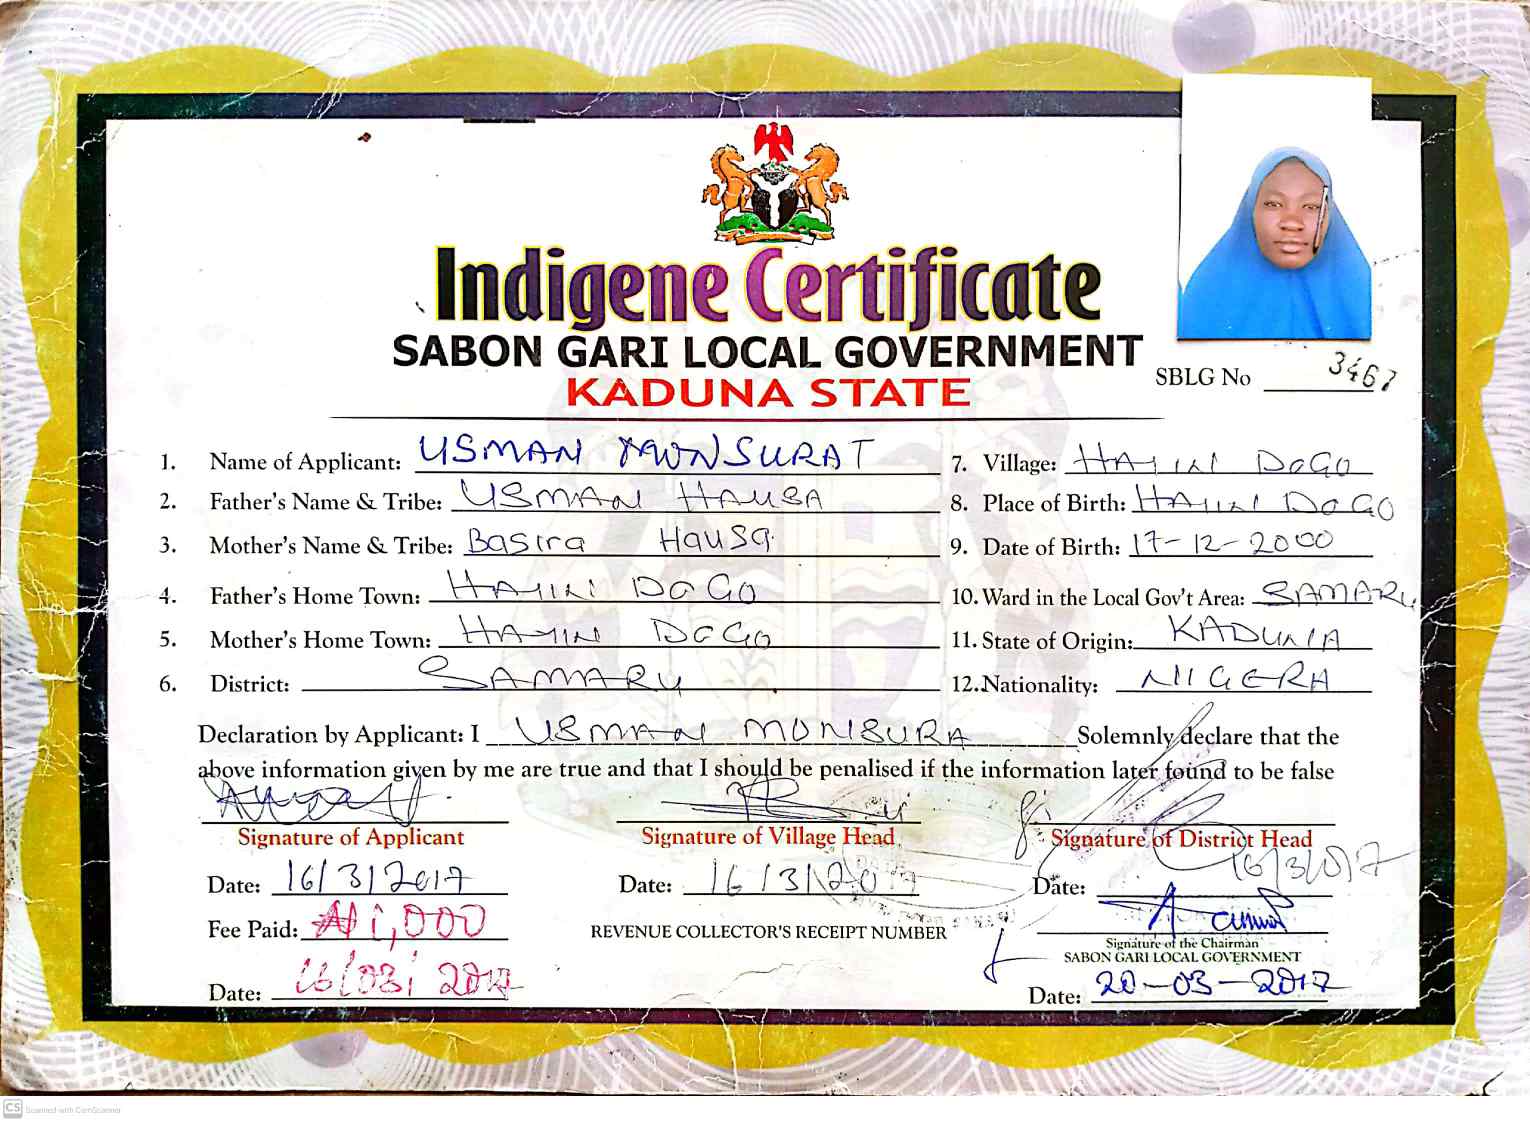 Indigene Certificate
SABON GARI LOCAL GOVERNMENT
KADUNA STATE
SBLG No 3467
1. Name of Applicant: USMAN MUNSURAT
2. Father's Name & Tribe: USMAN HAUSA
3. Mother's Name & Tribe: Basira Hausa
4. Father's Home Town: HAYIN DOGO
5. Mother's Home Town: HAYIN DOGO
6. District: SAMARU
7. Village: HAYIN DOGO
8. Place of Birth: HAYIN DOGO
9. Date of Birth: 17-12-2000
10. Ward in the Local Gov't Area: SAMARU
11. State of Origin: KADUNA
12. Nationality: NIGERIA
Declaration by Applicant: I USMAN MONSURA Solemnly declare that the
above information given by me are true and that I should be penalised if the information later found to be false
Signature of Applicant Signature of Village Head Signature of District Head
Date: 16/3/2017 Date: 16/3/2017 Date: 16/3/017
Fee Paid: ₦1,000 REVENUE COLLECTOR'S RECEIPT NUMBER
Signature of the Chairman
SABON GARI LOCAL GOVERNMENT
Date: 16/03/2017 Date: 20-03-2017
CS Scanned with CamScanner